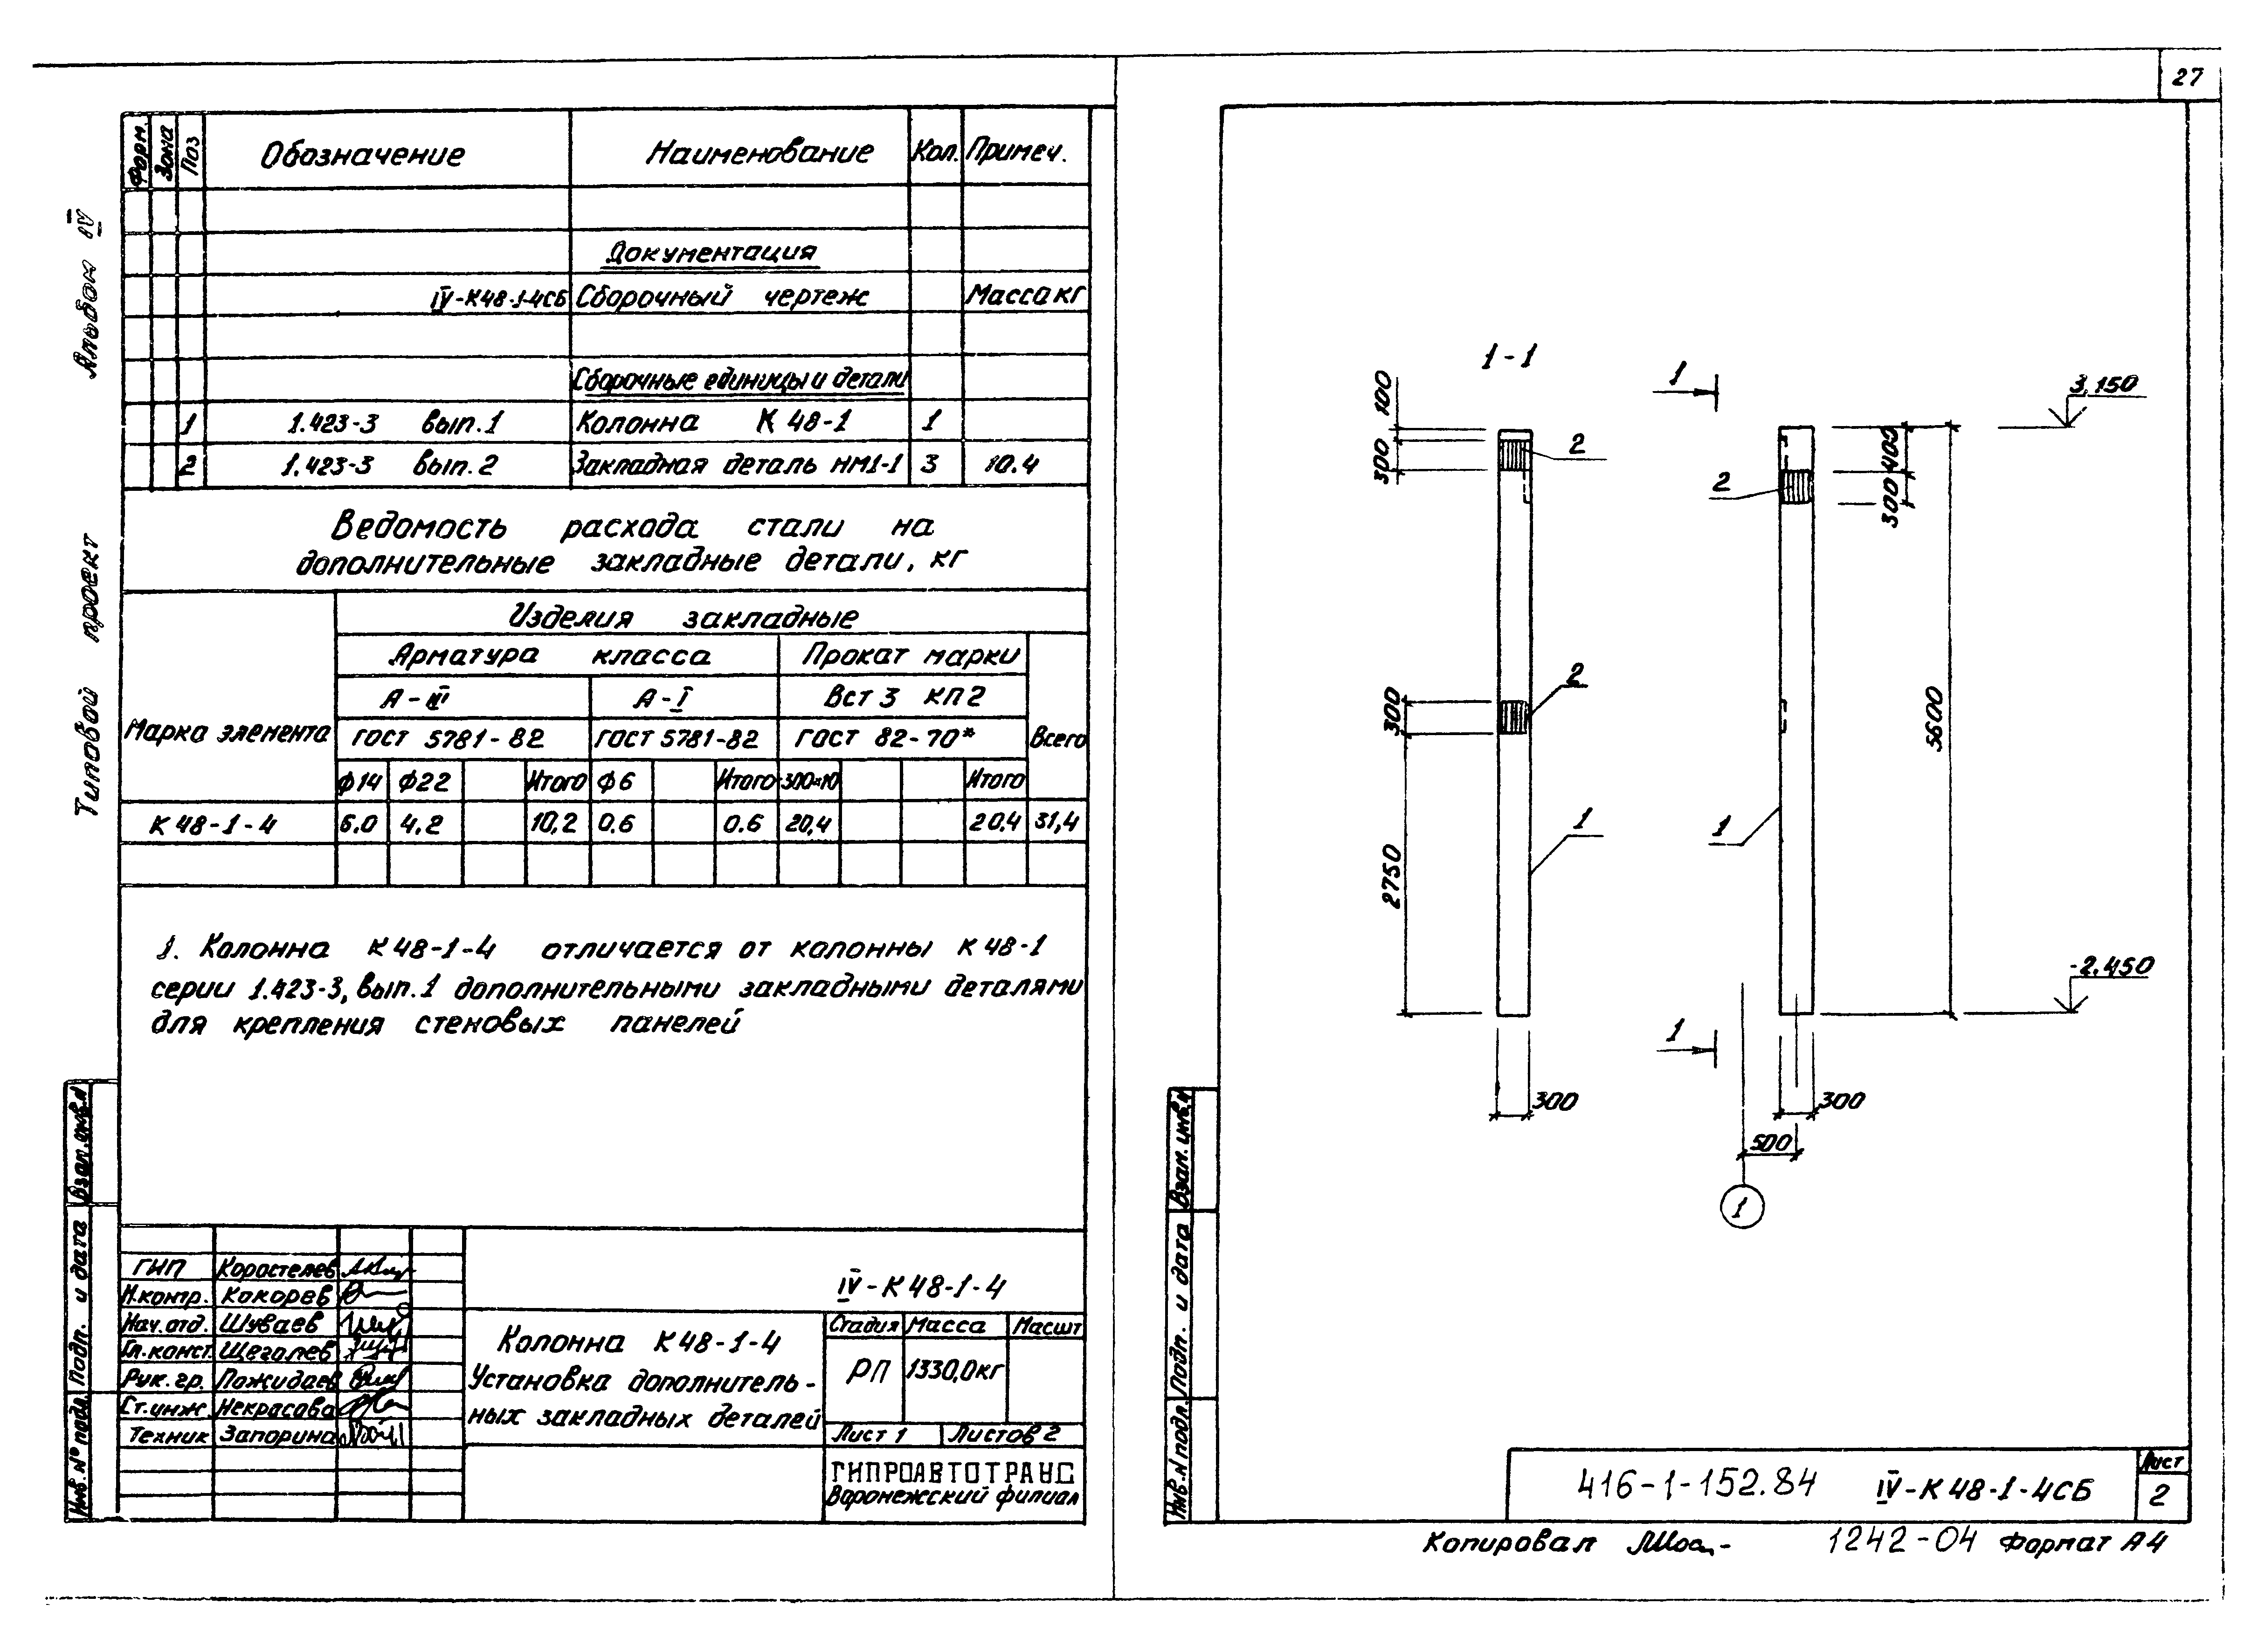 27
Альбом IV
Типовой проект
Форм. Зона Поз Обозначение Наименование Кол. Примеч.
Документация
IV-К48-1-4СБ Сборочный чертеж Масса кг
Сборочные единицы и детали
1 1.423-3 вып.1 Колонна К 48-1 1
2 1.423-3 вып.2 Закладная деталь НМ1-1 3 10.4
Ведомость расхода стали на
дополнительные закладные детали, кг
Марка элемента Изделия закладные Всего
Арматура класса Прокат марки
А-III А-I Вст 3 КП2
ГОСТ 5781-82 ГОСТ 5781-82 ГОСТ 82-70*
Ф14 Ф22 Итого Ф6 Итого 300×10 Итого
К 48-1-4 6.0 4.2 10,2 0.6 0.6 20,4 20.4 31,4
1. Колонна К 48-1-4 отличается от колонны К 48-1
серии 1.423-3, вып.1 дополнительными закладными деталями
для крепления стеновых панелей
Взам. инв.N
Подп. и дата
Инв. N° подл.
ГИП Коростелев
Н.контр. Кокорев
Нач.отд. Шуваев
Гл.конст. Щеголев
Рук. гр. Пожидаев
Ст.инж. Некрасова
Техник Запорина
IV-К 48-1-4
Колонна К 48-1-4
Установка дополнитель-
ных закладных деталей
Стадия Масса Масшт
РП 1330,0кг
Лист 1 Листов 2
ГИПРОАВТОТРАНС
Воронежский филиал
1-1
100
300
2
300
2
2750
1
300
1
3,150
400
300
2
5600
1
-2.450
1
300
500
1
Взам. инв.N
Подп. и дата
Инв.N подл.
416-1-152.84 IV-К 48-1-4СБ
Лист
2
Копировал 1242-04 Формат А4